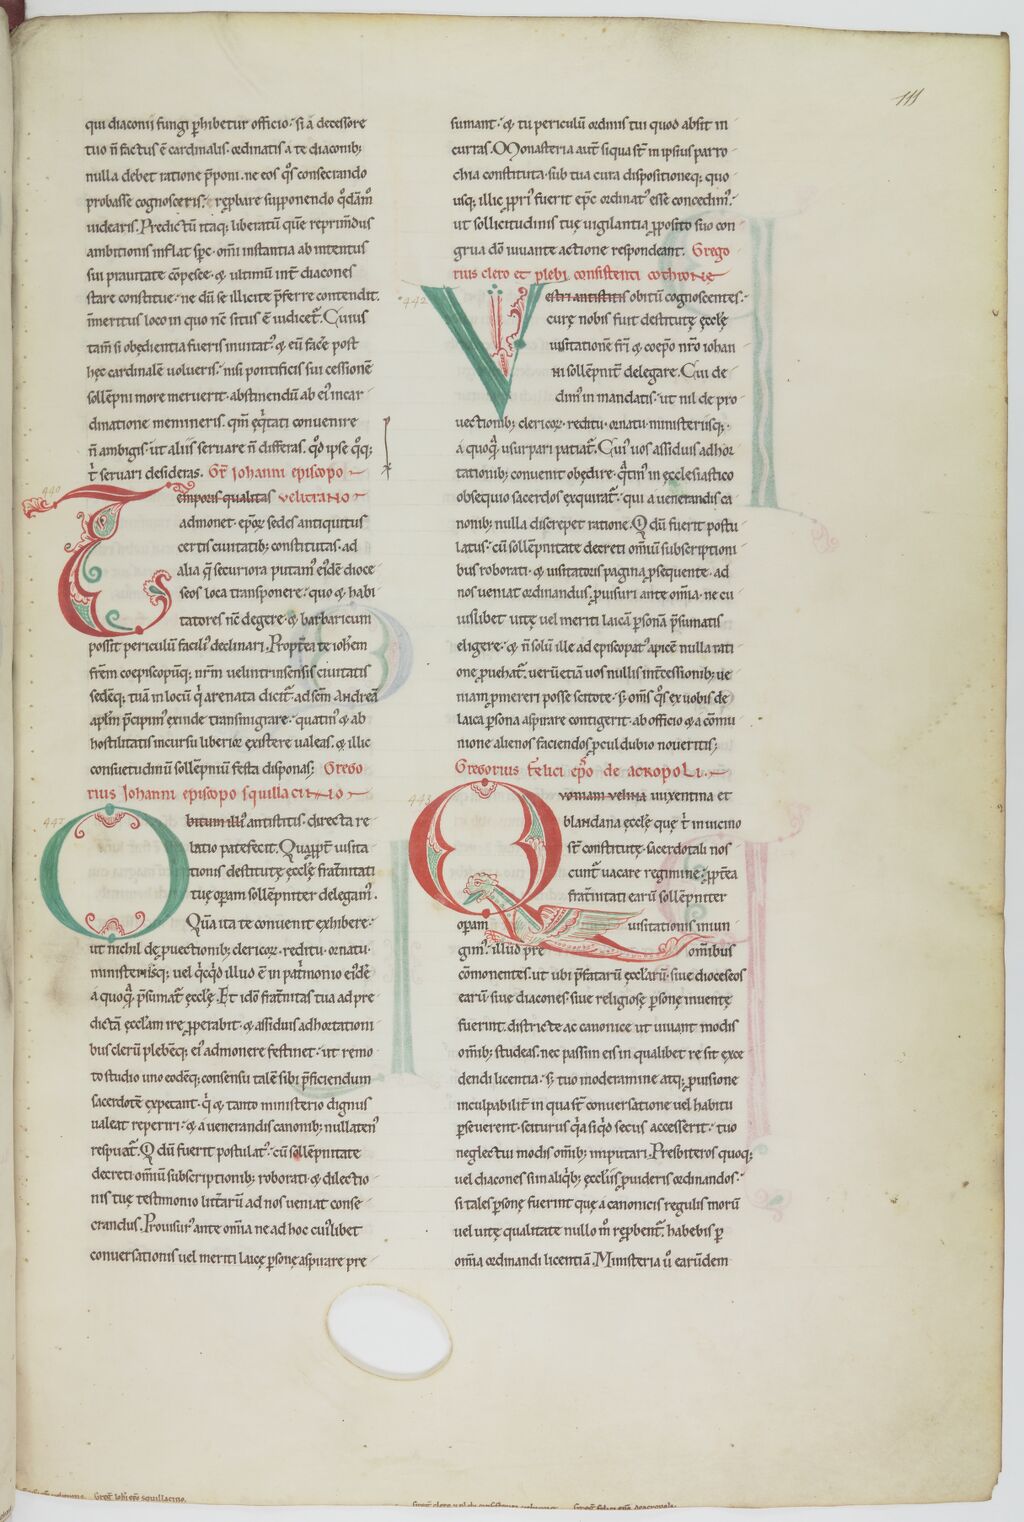 111
qui diaconii fungi p̱hibetur officio. si a decessore
tuo n̄ factus ē cardinalis. ordinatis a te diaconib;
nulla debet ratione p̄poni. ne eos q̊s consecrando
probasse cognosceris. rep̱bare supponendo q̊dām̊
uidearis. Predictū itaq; liberatū quē reprim̄dus
ambitionis inflat sp̄c. om̄i instantia ab intentus
sui prauitate cōpesce. & ultimū int̄ diacones
stare constitue. ne dū se illicite p̄ferre contendit.
īmeritus loco in quo nc̄ situs ē iudicet᷑. Cuius
tam̄ si obędientia fueris inuitat᷒. & eū facē post
hęc cardinalē uolueris. nisi pontificis sui cessionē
sollēpni more meruerit. abstinendū ab ei᷒ incar
dinatione memineris. qm̄ ęq̇tati conuenire
n̄ ambigis. ut aliis seruare n̄ differas. q̊d ipse q̊q;
t̊ seruari desideras. Gr̄ Iohanni episcopo
440 Temporis qualitas velitrano
admonet. ep̄orꝝ sedes antiquitus
certis ciuitatib; constitutas. ad
alia q̄ securiora putam᷒ ei᷒dē dioce
seos loca transponere. quo & habi
tatores nc̄ degere. & barbaricum
possit periculū facili᷒ declinari. Propt̄ea te ioh̄em
frēm coepiscopūq; nr̄m uelintrinsensis ciuitatis
sedēq; tuā in locū q̇ arenata dicit᷑ ad sc̄m Andreā
apl̄m p̄cipim᷒ exinde transmigrare. quatin᷒ & ab
hostilitatis incursu liberior existere ualeas. & illic
consuetudinū sollēpniū festa disponas; Grego
rius Iohanni episcopo squillacitano
Obitum illi᷒ antistitis. directa re
latio patefecit. Quap̱pt̄ uisita
tionis destitutę ęcclę frat̄nitati
tuę op̱am sollēpniter delegam᷒.
Quā ita te conuenit exhibere.
ut nichil dę p̱uectionib; clericorꝝ. reditu. ornatu.
ministeriisq; uel q̇cq̇d illud ē in pat̄monio ei᷒dē
a quoq̊᷑ p̄sumat᷑ ęcclę. Et idō frat̄nitas tua ad pre
dictā ęccl̄am ire p̱perabit. & assiduis adhortationi
bus clerū plebēq; ei᷒ admonere festinet. ut remo
to studio uno eodēq; consensu talē sibi p̄ficiendum
sacerdotē expetant. q̇ & tanto ministerio dignus
ualeat reperiri. & a uenerandis canonib; nullaten᷒
respuat᷑. Q dū fuerit postulat᷒. cū sollēpnitate
decreti om̄iū subscriptionib; roborati. & dilectio
nis tuę testimonio litt̄arū ad nos ueniat conse
crandus. Prouisur᷒ ante om̄ia ne ad hoc cui᷒libet
conuersationis uel meriti laicę p̱sonę aspirare pre
sumant. & tu periculū ordinis tui quod absit in
curras. Monasteria aut̄ siqua st̄ in ipsius parro
chia constituta. sub tua cura dispositioneq; quo
usq; illic p̱pri᷒ fuerit ep̄c ordinat᷒ esse concedim᷒.
ut sollicitudinis tuę uigilantia p̱posito suo con
grua dō iuuante actione respondeant. Grego
rius clero et plebi consistenti cothrone
442 Vestri antistitis obitū cognoscentes.
curę nobis fuit destitutę ęcclę
uisitationē fr̄i & coep̄o nr̄o iohan
ni sollēpnit̄ delegare. Cui de
dim᷒ in mandatis. ut nil de pro
uectionib; clericorꝝ. reditu. ornatu. ministeriisq;.
a quoq̊᷑ usurpari patiat᷑. Cui᷒ uos assiduis adhor
tationib; convenit obędire. q̇tin᷒ in ęcclesiastico
obsequio sacerdos exquirat᷑. qui a uenerandis ca
nonib; nulla discrepet ratione. Q dū fuerit postu
latus. cū sollēpnitate decreti om̄iū subscriptioni
bus roborati. & uisitatoris pagina p̱sequente. ad
nos ueniat ordinandus. p̱uisuri ante om̄ia. ne cu
iuslibet uitę uel meriti laicā p̱sonā p̄sumatis
eligere. & n̄ solū ille ad episcopat᷒ apicē nulla rati
one p̱uehat᷑. uerū etiā uos nullis int̄cessionib; ue
niam p̱mereri posse scitote. s; om̄s q̊s ex uobis de
laica p̱sona aspirare contigerit. ab officio & a cōmu
nione alienos faciendos p̱cul dubio noueritis;
Gregorius Felici ep̄o de acropoli.
443 Quoniam uelina uuxentina et
blandana ęcclę quę t̊ in uicino
st̄ constitutę. sacerdotali nos
cunt᷑ uacare regimine. p̱pt̄ea
frat̄nitati earū sollēpniter
op̱am uisitationis iniun
gim᷒. illud pre omībus
cōmonentes. ut ubi p̄fatarū ęccl̄arū. siue dioceseos
earū siue diacones. siue religiosę p̱sonę inuentę
fuerint. districte ac canonice ut uiuant modis
om̄ib; studeas. nec passim eis in qualibet re sit exce
dendi licentia. s; tuo moderamine atq; p̱uisione
inculpabilit̄ in qua st̄ conuersatione uel habitu
p̱seuerent. scituṙus q̇a siq̇d secus accesserit. tuo
neglectui modis om̄ib; imputari. Presbiteros quoq;
uel diacones si in aliq̇b; ęccl̄iis p̱uideris ordinandos.
si tales p̱sonę fuerint que a canonicis regulis morū
uel uitę qualitate nullo m̊ rep̱bent᷑. habebis p̱
om̄ia ordinandi licentiā. Ministeria u̇ earūdem